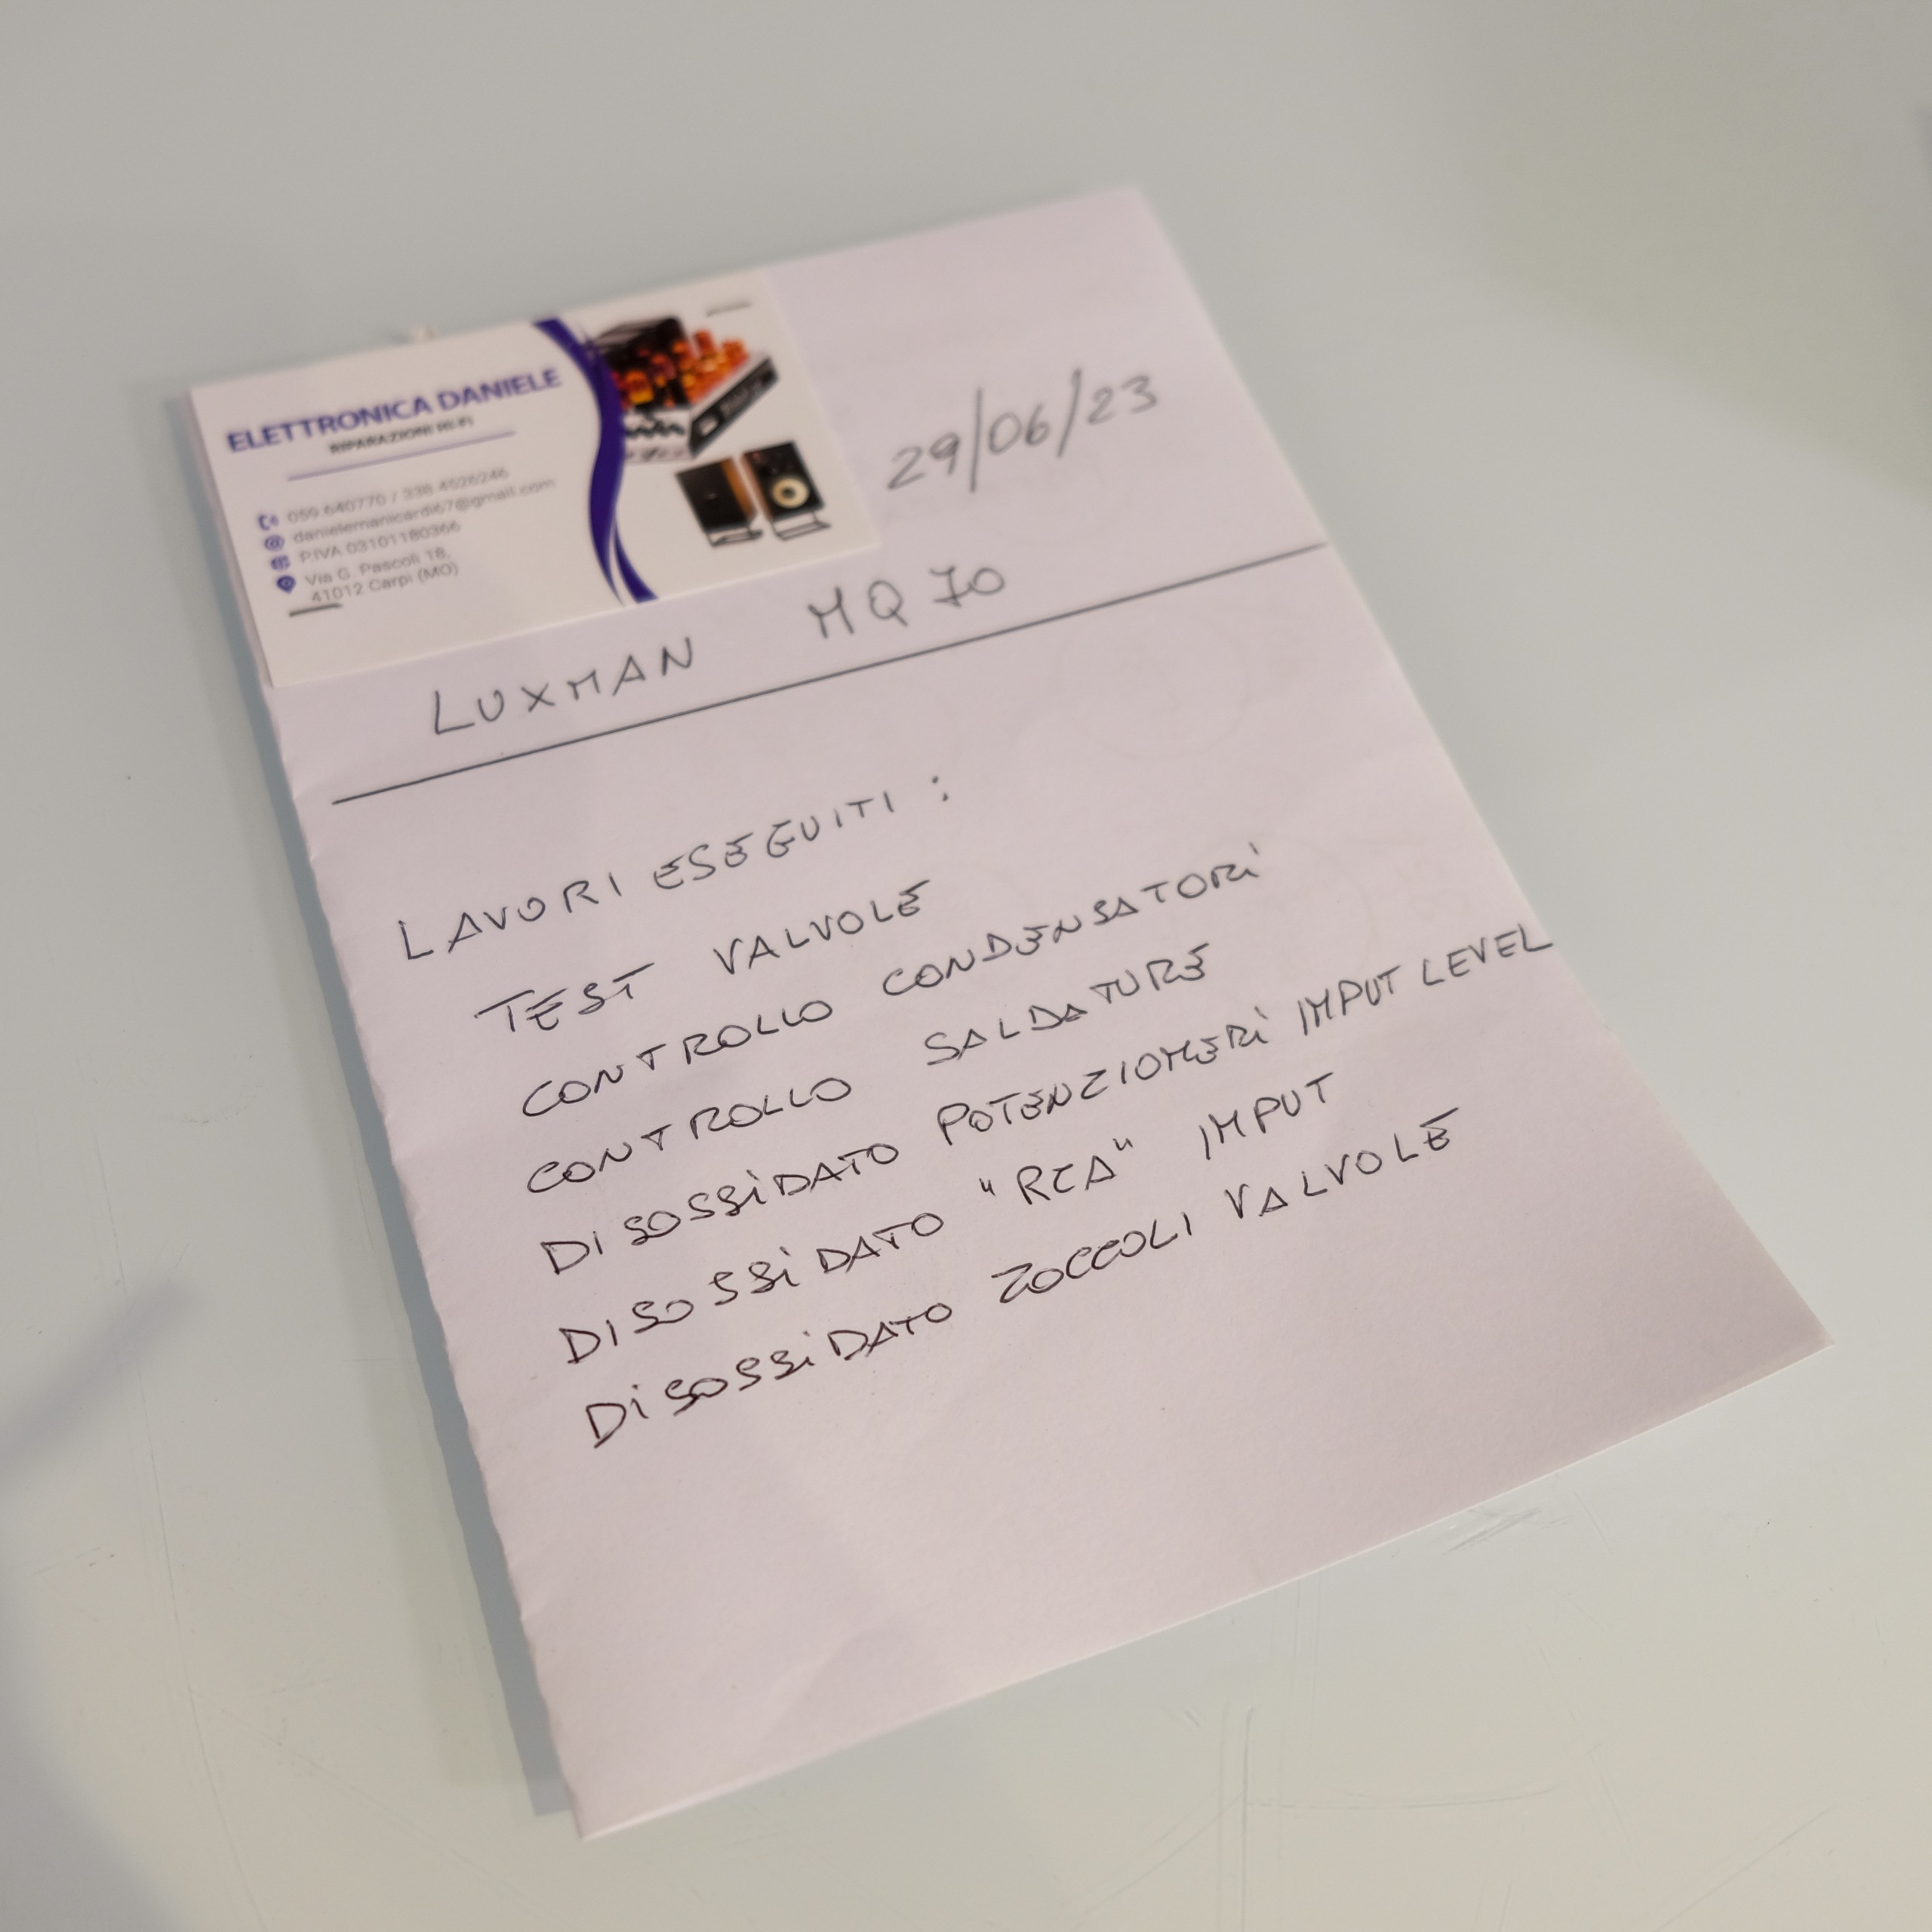 ELETTRONICA DANIELE
RIPARAZIONI HI-FI
059 640770 / 338 4526246
danielemanicardi67@gmail.com
P.IVA 03101180366
Via G. Pascoli 18,
41012 Carpi (MO)
29/06/23
LUXMAN MQ 70
LAVORI ESEGUITI :
TEST VALVOLE
CONTROLLO CONDENSATORI
CONTROLLO SALDATURE
DISOSSIDATO POTENZIOMERI IMPUT LEVEL
DISOSSIDATO "RCA" IMPUT
DISOSSIDATO ZOCCOLI VALVOLE